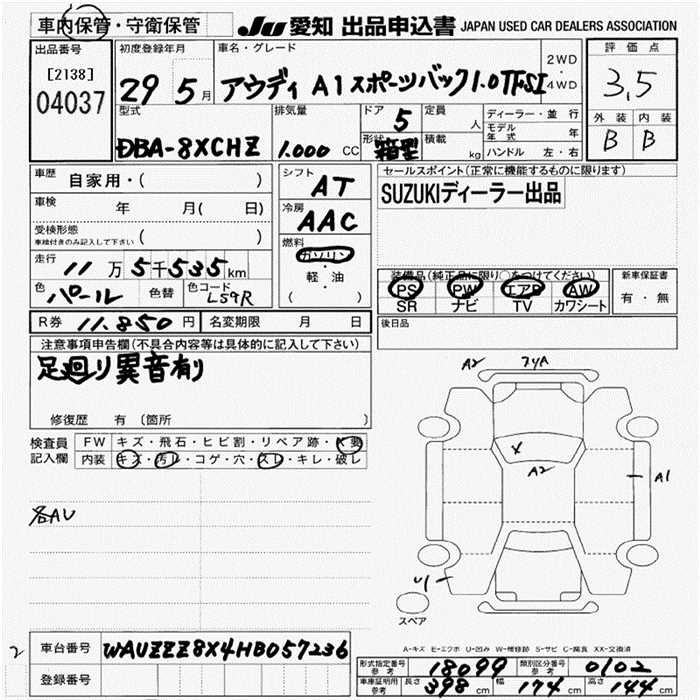 車内保管・守衛保管
JU 愛知 出品申込書 JAPAN USED CAR DEALERS ASSOCIATION
出品番号
[2138]
04037
初度登録年月
29 5 月
車名・グレード
アウディ A1スポーツバック1.0TFSI
2WD
・
4WD
評価点
3,5
外装 内装
B B
型式
DBA-8XCHZ
排気量
1.000 CC
ドア
5
形状
箱型
定員
人
積載
kg
ディーラー・並行
モデル年式 年
ハンドル 左・右
車歴 自家用・( )
車検 年 月( 日)
受検形態
車検付きのみ記入して下さい ( )
走行 11万5千535km
色 パール 色替 色コード L59R
シフト
AT
冷房
AAC
燃料
ガソリン
・
軽・油
( )
セールスポイント(正常に機能するものに限ります)
SUZUKIディーラー出品
装備品(純正品に限り○をつけてください)
PS PW エアB AW
SR ナビ TV カワシート
新車保証書
有・無
R券 11.850円 名変期限 月 日
後日品
注意事項申告欄(不具合内容等は具体的に記入して下さい)
足廻り異音有り
修復歴 有 (箇所 )
検査員 FW キズ・飛石・ヒビ割・リペア跡・X要
記入欄 内装 キズ・汚レ・コゲ・穴・スレ・キレ・破レ
各AU
A2
フケA
X
A2
A1
U1
スペア
A-キズ E-エクボ U-凹み W-補修跡 S-サビ C-腐食 XX-交換済
2
車台番号 WAUZZZ8X4HB057236
登録番号
形式指定番号 参考 18099 類別区分番号 参考 0102
車庫証明用 参考 長さ 398 cm 幅 174 cm 高さ 144 cm